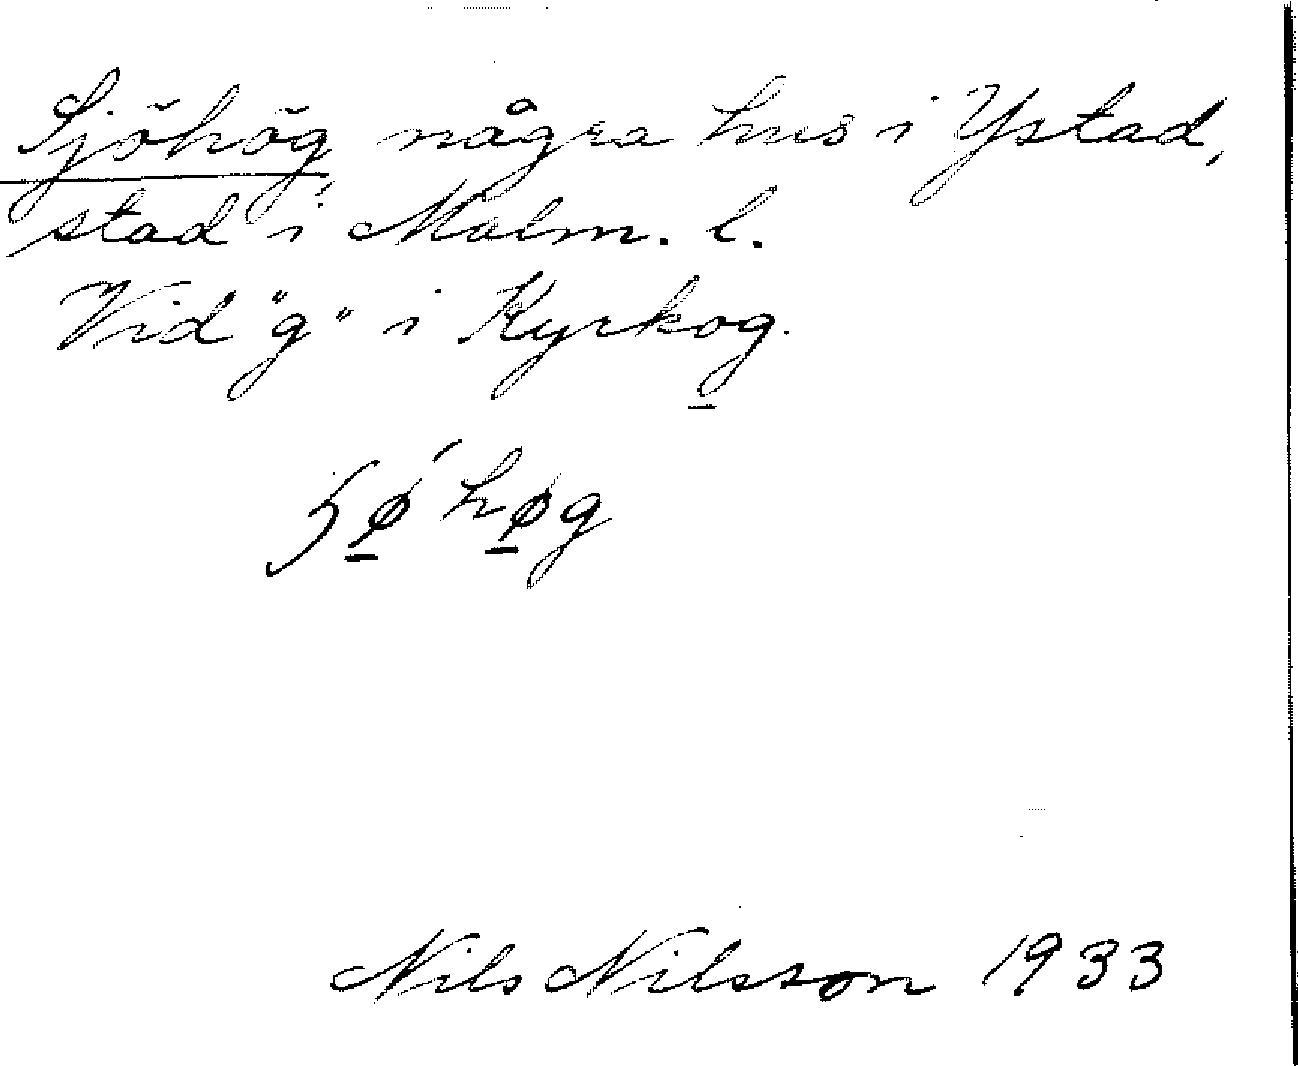 Sjöhög, några hus i Ystad,
stad i Malm. l.
Vid "g" i Kyrkog.
ʃø̱ʹhø̱g
Nils Nilsson 1933